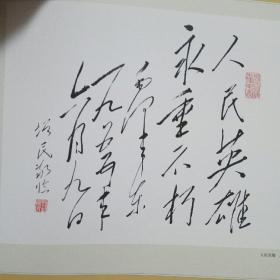 人民英雄
永垂不朽
毛泽东
一九五五年
六月九日
民敬临